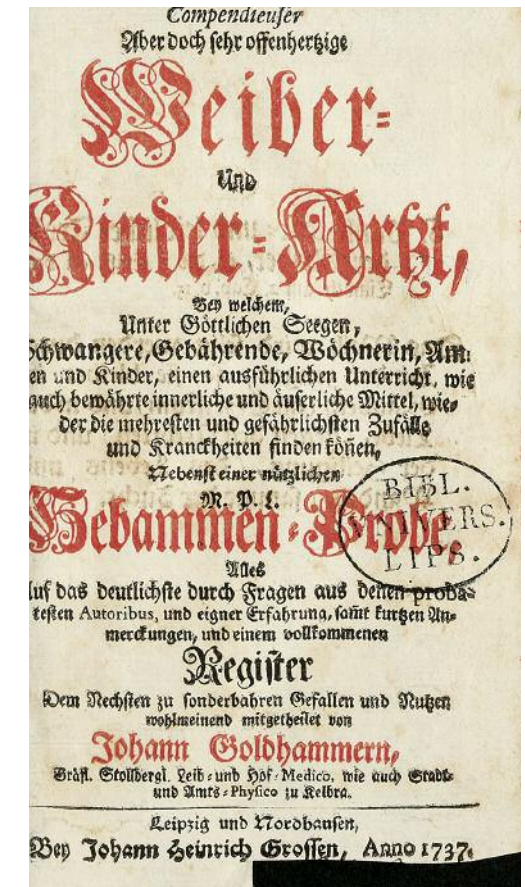 Compendieuser
Aber doch sehr offenhertzige
Weiber-
Und
Kinder-Artzt,
Bey welchem,
Unter Göttlichen Seegen,
Schwangere, Gebährende, Wöchnerin, Am-
en und Kinder, einen ausführlichen Unterricht, wie
auch bewährte innerliche und äuserliche Mittel, wie-
der die mehresten und gefährlichsten Zufälle
und Kranckheiten finden köñen,
Nebenst einer nützlichen
M. P. L.
Hebammen-Probe,
BIBL.
VNIVERS.
LIPS.
Alles
Auf das deutlichste durch Fragen aus denen proba-
testen Autoribus, und eigner Erfahrung, sam̃t kurtzen An-
merckungen, und einem vollkommenen
Register
Dem Nechsten zu sonderbahren Gefallen und Nutzen
wohlmeinend mitgetheilet von
Johann Goldhammern,
Gräfl. Stollbergl. Leib- und Hof-Medico, wie auch Stadt-
und Amts-Physico zu Kelbra.
Leipzig und Nordhausen,
Bey Johann Heinrich Grossen, Anno 1737.